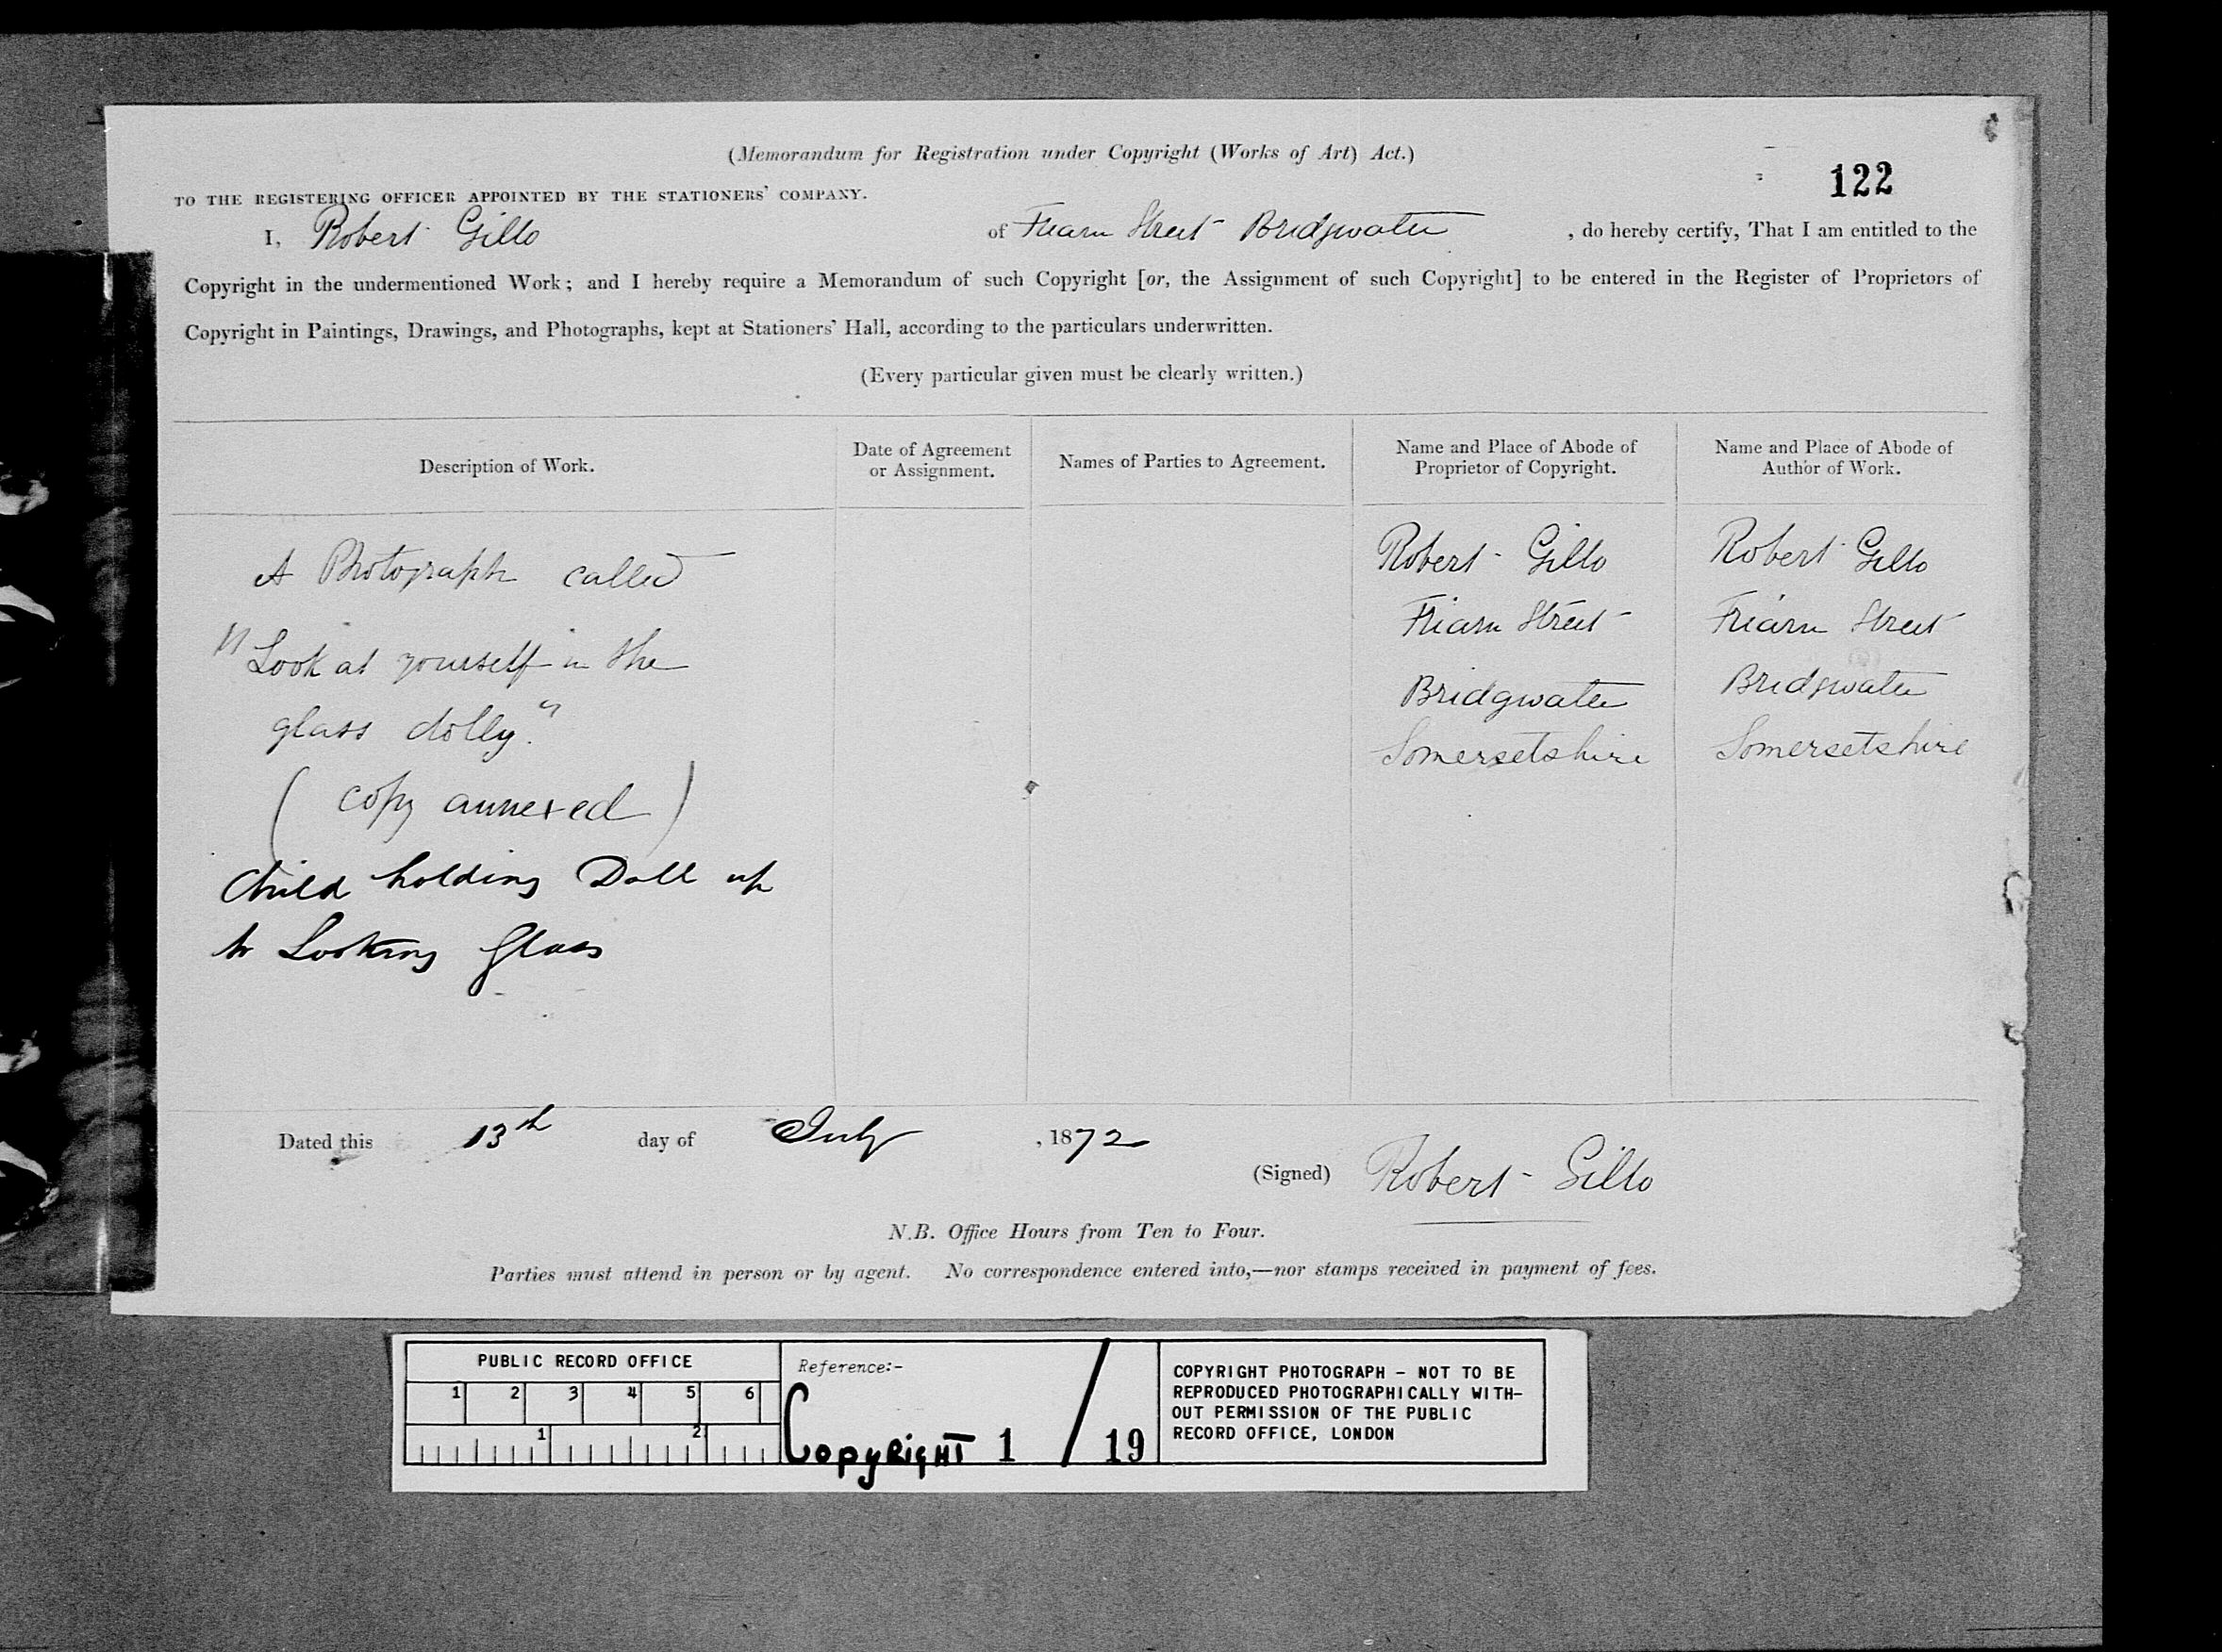 (Memorandum for Registration under Copyright (Works of Art) Act.)
122
TO THE REGISTERING OFFICER APPOINTED BY THE STATIONERS' COMPANY.
I, Robert Gillo of Friarn Street Bridgwater, do hereby certify, That I am entitled to the
Copyright in the undermentioned Work; and I hereby require a Memorandum of such Copyright [or, the Assignment of such Copyright] to be entered in the Register of Proprietors of
Copyright in Paintings, Drawings, and Photographs, kept at Stationers' Hall, according to the particulars underwritten.
(Every particular given must be clearly written.)
Description of Work.
Date of Agreement
or Assignment.
Names of Parties to Agreement.
Name and Place of Abode of
Proprietor of Copyright.
Name and Place of Abode of
Author of Work.
A Photograph called
"Look at yourself in the
glass dolly."
(copy annexed)
Child holding Doll up
to Looking Glass
Robert Gillo
Friarn Street
Bridgwater
Somersetshire
Robert Gillo
Friarn Street
Bridgwater
Somersetshire
Dated this 13th day of July, 1872
(Signed) Robert Gillo
N.B. Office Hours from Ten to Four.
Parties must attend in person or by agent. No correspondence entered into,—nor stamps received in payment of fees.
PUBLIC RECORD OFFICE
1 2 3 4 5 6
1 2
Reference:-
Copyright 1 / 19
COPYRIGHT PHOTOGRAPH - NOT TO BE
REPRODUCED PHOTOGRAPHICALLY WITH-
OUT PERMISSION OF THE PUBLIC
RECORD OFFICE, LONDON